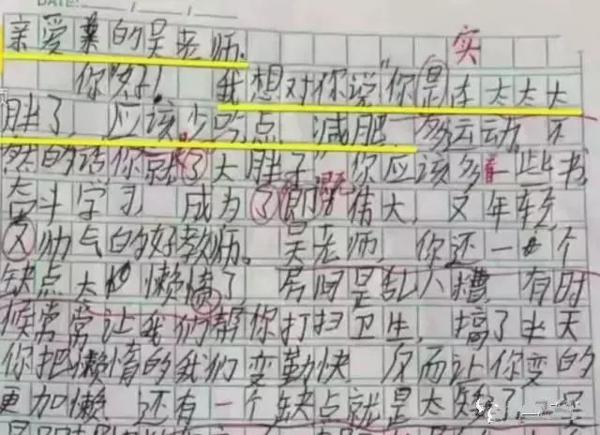 亲爱的吴老师。
实
你好！我想对你说“你是在太太太
胖了，应该少吃点，减肥，多运动，不
然的话你就了大胖子”你应该多看一些书
奋斗学习，成为了即伟大，又年轻
又帅气的好教师。吴老师，你还一个
缺点太懒惰了，房间是乱八糟，有时
候常常让我们帮你打扫卫生，搞了半天
你把懒惰的我们变勤快，反而让你变的
更加懒，还有一个缺点就是太矮了，